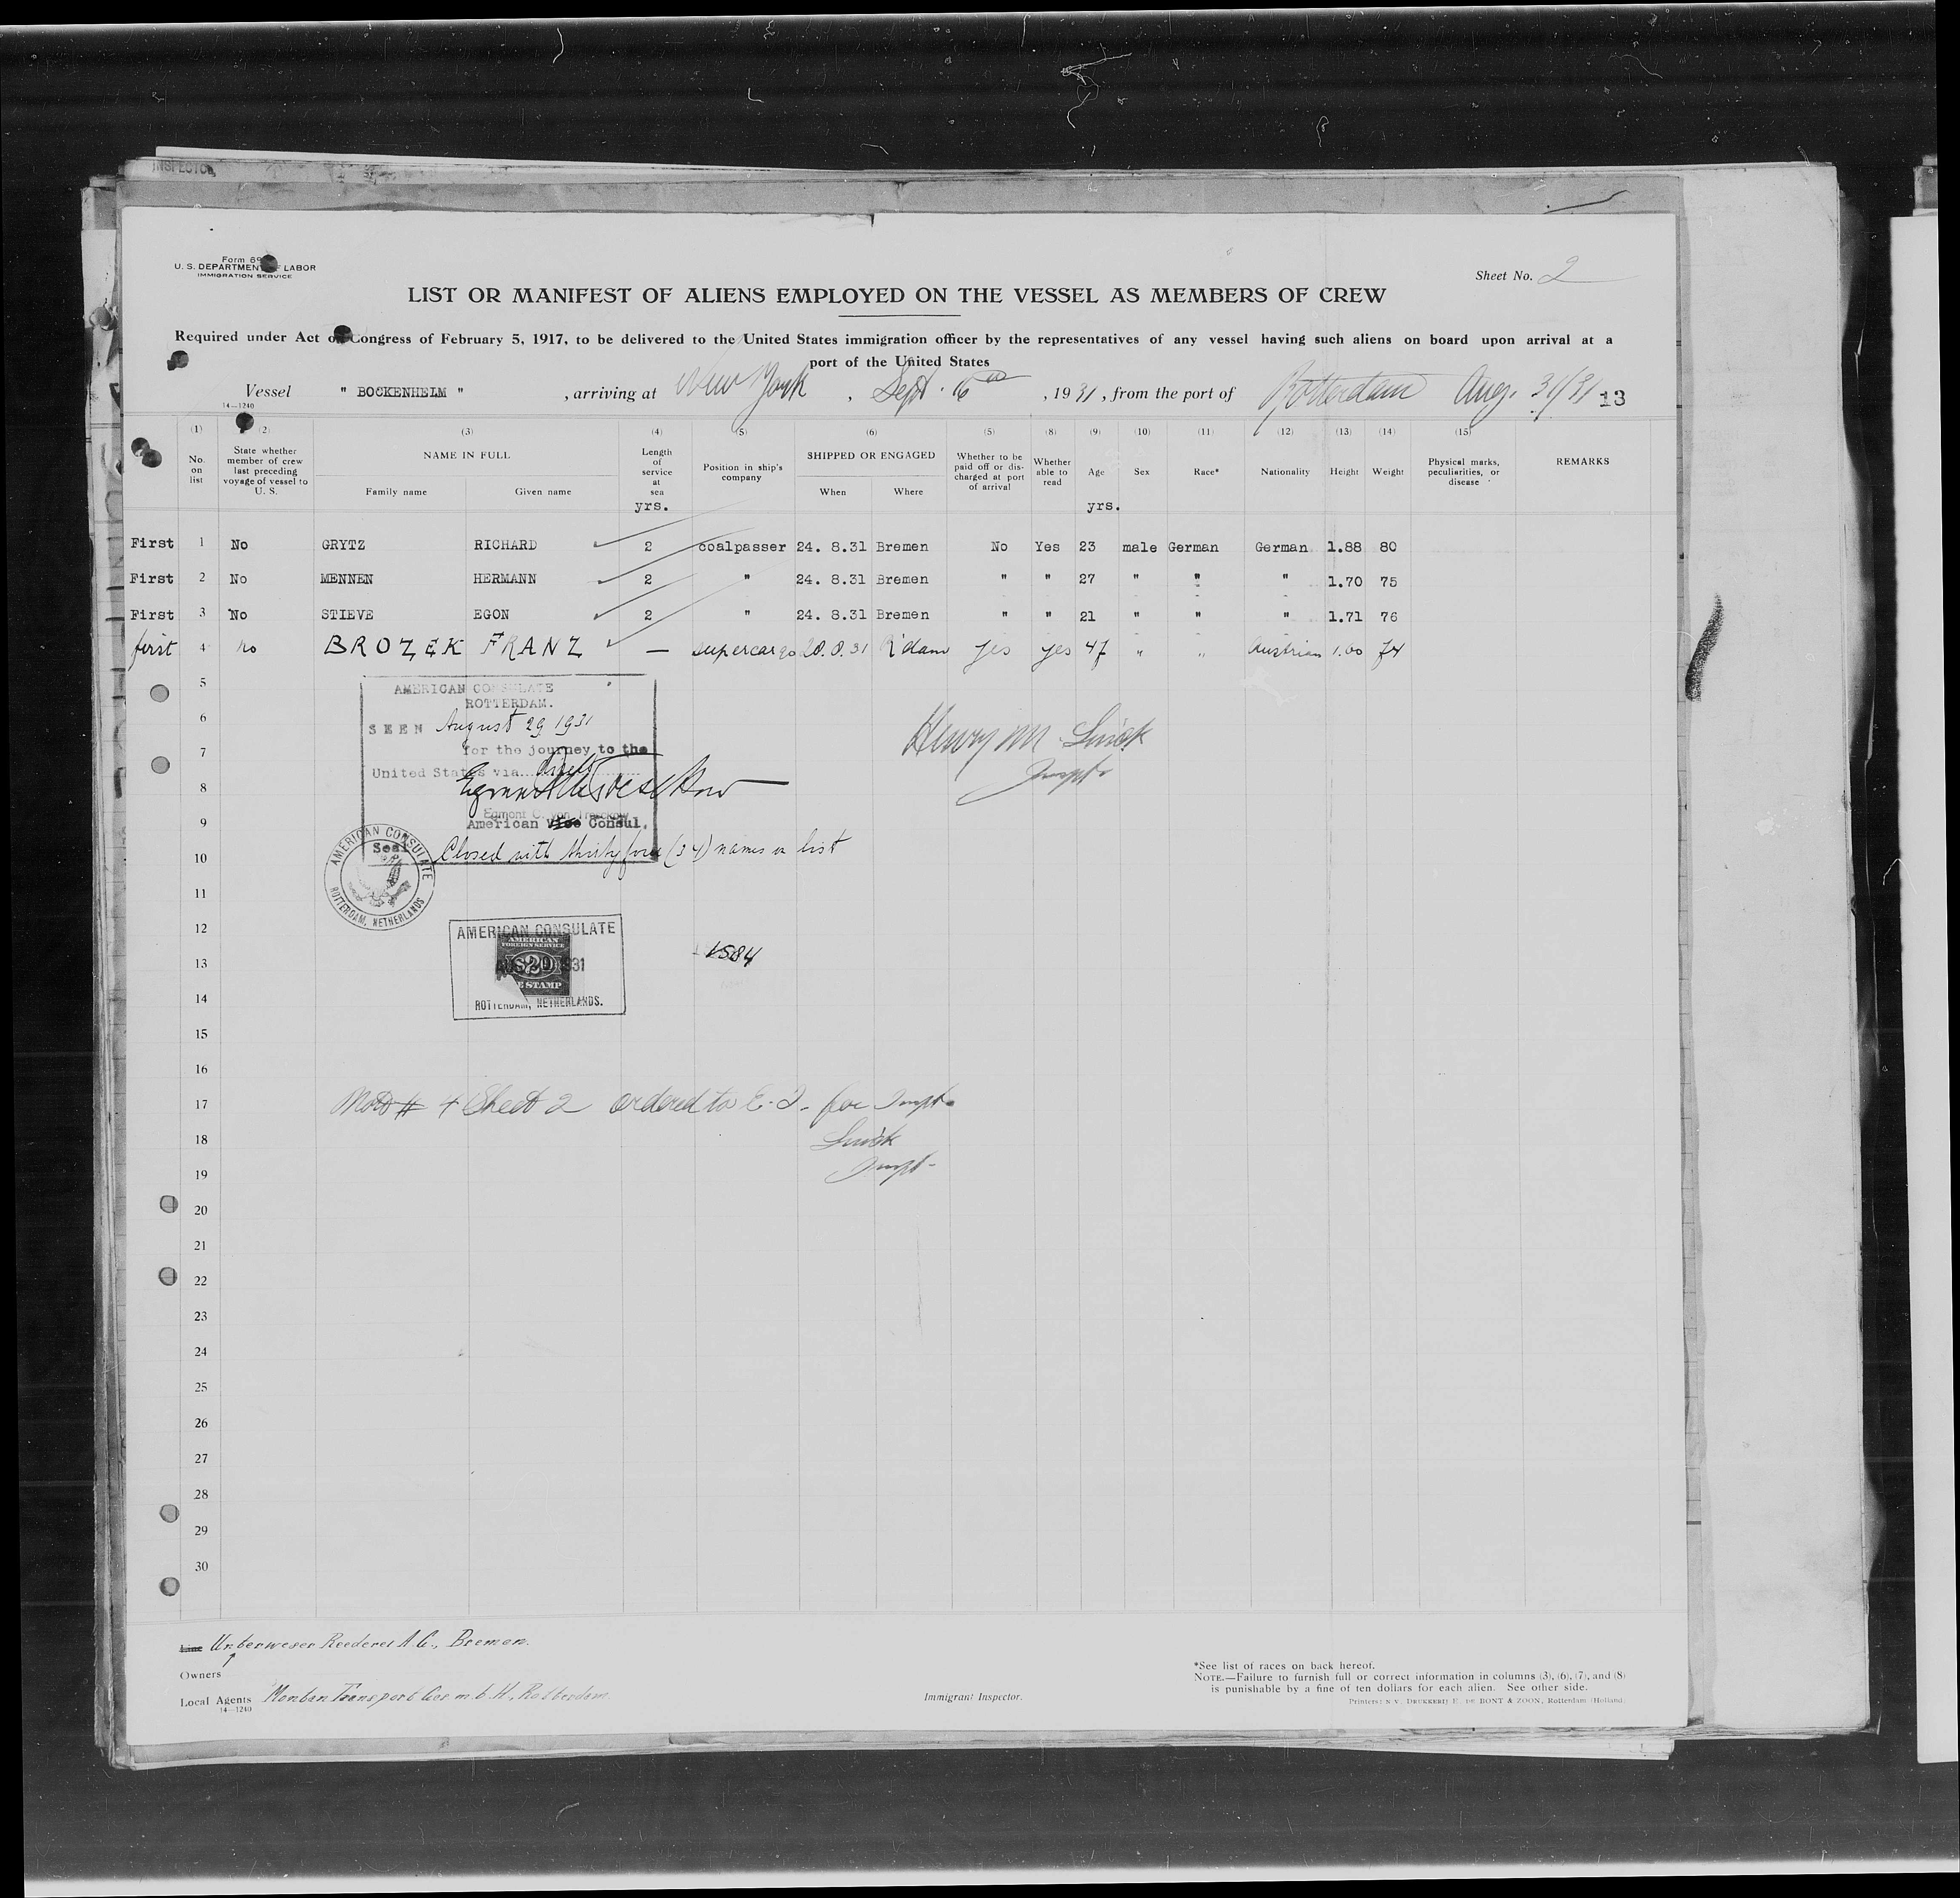 INSPECTOR
Form 69
U. S. DEPARTMENT OF LABOR
IMMIGRATION SERVICE
Sheet No. 2
LIST OR MANIFEST OF ALIENS EMPLOYED ON THE VESSEL AS MEMBERS OF CREW
Required under Act of Congress of February 5, 1917, to be delivered to the United States immigration officer by the representatives of any vessel having such aliens on board upon arrival at a
port of the United States
Vessel " BOCKENHEIM " , arriving at New York , Sept. 16 , 1931 , from the port of Rotterdam Aug. 31/31 13
14—1240
(1) (2) (3) (4) (5) (6) (5) (8) (9) (10) (11) (12) (13) (14) (15)
No. on list State whether member of crew last preceding voyage of vessel to U. S. NAME IN FULL Family name Given name Length of service at sea yrs. Position in ship's company SHIPPED OR ENGAGED When Where Whether to be paid off or discharged at port of arrival Whether able to read Age yrs. Sex Race* Nationality Height Weight Physical marks, peculiarities, or disease REMARKS
First 1 No GRYTZ RICHARD 2 coalpasser 24. 8.31 Bremen No Yes 23 male German German 1.88 80
First 2 No MENNEN HERMANN 2 " 24. 8.31 Bremen " " 27 " " " 1.70 75
First 3 No STIEVE EGON 2 " 24. 8.31 Bremen " " 21 " " " 1.71 76
first 4 no BROZEK FRANZ — supercargo 28.8.31 R'dam yes yes 47 " " Austrian 74
5
AMERICAN CONSULATE
ROTTERDAM.
6
SEEN August 29 1931
7
for the journey to the
United States via direct
8
Egmont C. von Tresckow
American Vice Consul.
Henry M.
Inspt.
9
Seal
Closed with thirty four (34) names on list
10
AMERICAN CONSULATE
ROTTERDAM, NETHERLANDS
11
12
AMERICAN CONSULATE
AMERICAN
FOREIGN SERVICE
AUG 29 1931
FEE STAMP
ROTTERDAM, NETHERLANDS.
1584
13
14
15
16
17
# 4 Sheet 2 ordered to E. I. for Inspt.
18
19
Inspt.
20
21
22
23
24
25
26
27
28
29
30
Line Unterweser Reederei A.G., Bremen.
Owners
Local Agents Montan Transport Ges m.b.H., Rotterdam.
14—1240
Immigrant Inspector.
*See list of races on back hereof.
NOTE.—Failure to furnish full or correct information in columns (3), (6), (7), and (8)
is punishable by a fine of ten dollars for each alien. See other side.
Printers: N.V. DRUKKERIJ F. DE BONT & ZOON, Rotterdam (Holland)